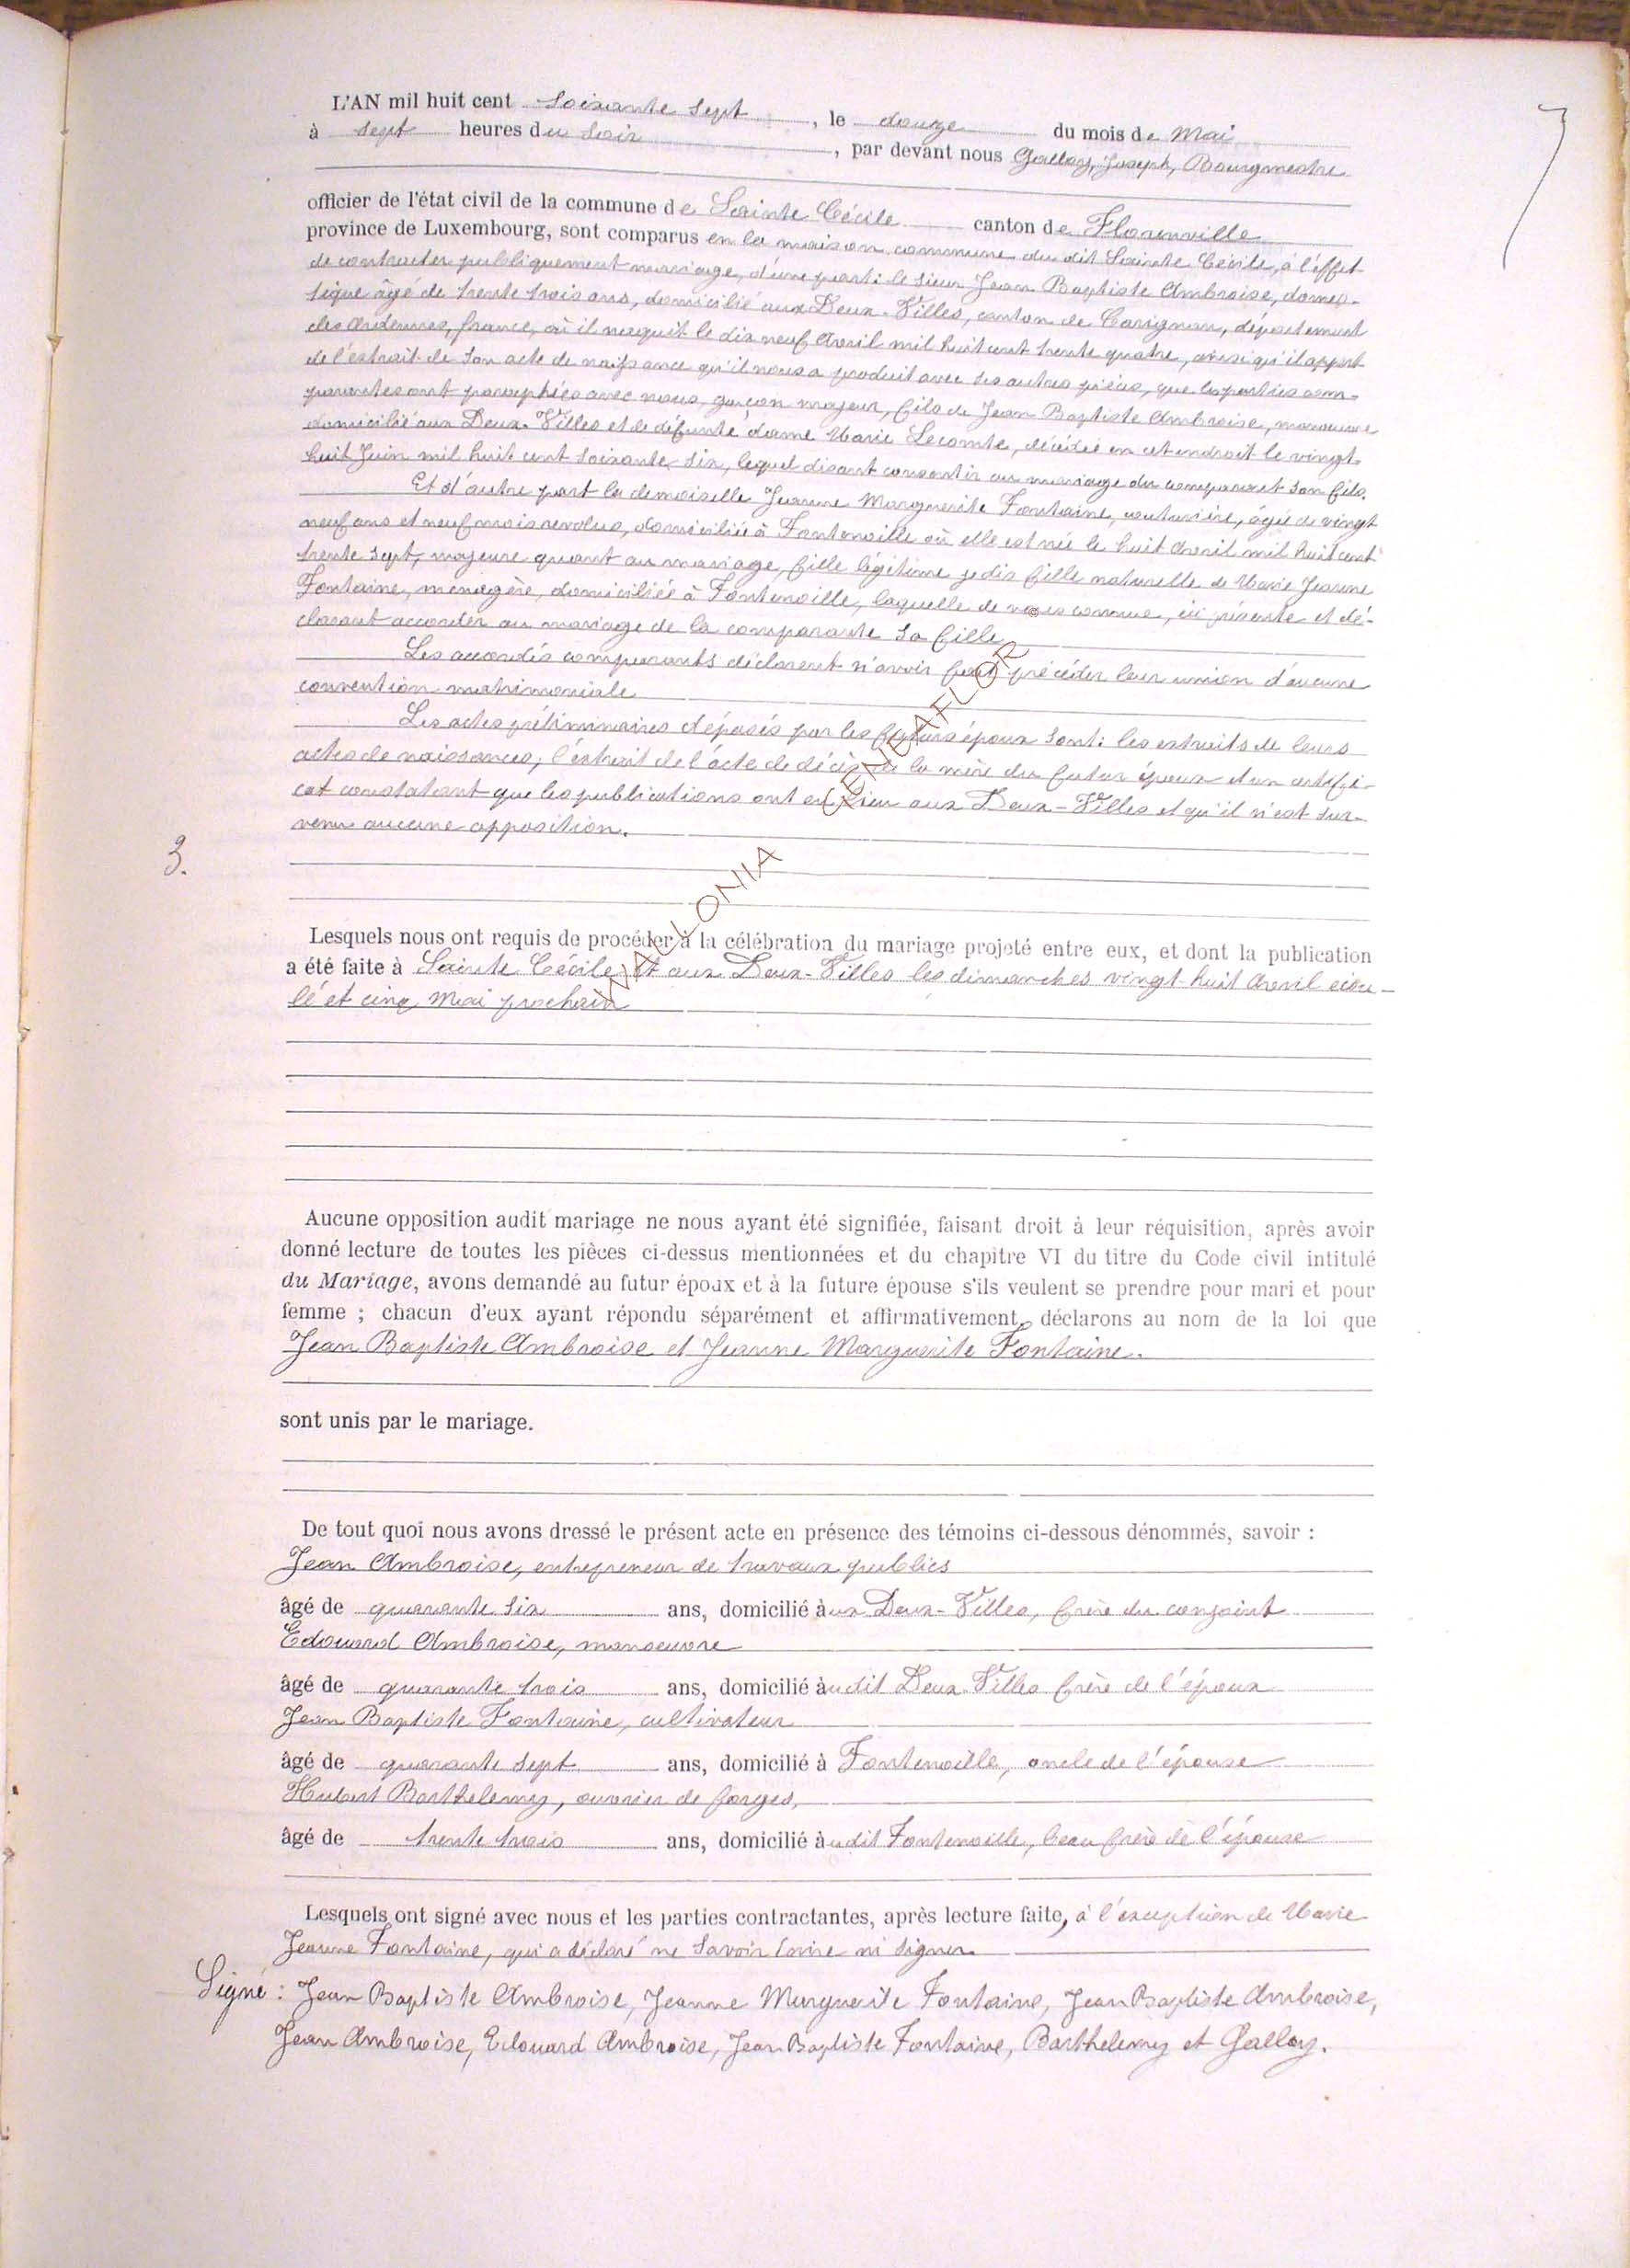 L'AN mil huit cent soixante sept, le douze du mois de Mai
à sept heures du soir, par devant nous Galloy, Joseph, Bourgmestre
officier de l'état civil de la commune de Sainte Cécile canton de Florenville
province de Luxembourg, sont comparus en la maison commune du dit Sainte Cécile, à l'effet
de contracter publiquement mariage, d'une part: le sieur Jean Baptiste Ambroise, domes-
tique âgé de trente trois ans, domicilié aux Deux-Villes, canton de Carignan, département
des Ardennes, france, où il naquit le dix neuf Avril mil huit cent trente quatre, ainsi qu'il appert
de l'extrait de son acte de naissance qu'il nous a produit avec ses autres pièces, que les parties com-
parantes ont paraphées avec nous, garçon majeur, fils de Jean Baptiste Ambroise, manœuvre
domicilié aux Deux-Villes et de défunte dame Marie Lecomte, décédée en cet endroit le vingt
huit Juin mil huit cent soixante six, lequel disant consentir au mariage du comparant son fils.
Et d'autre part la demoiselle Jeanne Marguerite Fontaine, couturière, âgée de vingt
neuf ans et neuf mois revolus, domiciliée à Fontenoille où elle est née le huit Avril mil huit cent
trente sept, majeure quant au mariage, fille légitime je dis fille naturelle de Marie Jeanne
Fontaine, ménagère, domiciliée à Fontenoille, laquelle de nous connue, ici présente et dé-
clarant accorder au mariage de la comparante sa fille
Les accordés comparants déclarent n'avoir fait précéder leur union d'aucune
convention matrimoniale
Les actes préliminaires déposés par les futurs époux sont: les extraits de leurs
actes de naissances, l'extrait de l'acte de décès de la mère du futur époux et un certifi-
cat constatant que les publications ont eu lieu aux Deux-Villes et qu'il n'est sur-
venu aucune opposition.
3.
WALLONIA GENEAFLOR ©
Lesquels nous ont requis de procéder à la célébration du mariage projeté entre eux, et dont la publication
a été faite à Sainte Cécile et aux Deux-Villes les dimanches vingt-huit Avril écou-
lé et cinq Mai prochain
Aucune opposition audit mariage ne nous ayant été signifiée, faisant droit à leur réquisition, après avoir
donné lecture de toutes les pièces ci-dessus mentionnées et du chapitre VI du titre du Code civil intitulé
du Mariage, avons demandé au futur époux et à la future épouse s'ils veulent se prendre pour mari et pour
femme ; chacun d'eux ayant répondu séparément et affirmativement, déclarons au nom de la loi que
Jean Baptiste Ambroise et Jeanne Marguerite Fontaine.
sont unis par le mariage.
De tout quoi nous avons dressé le présent acte en présence des témoins ci-dessous dénommés, savoir :
Jean Ambroise, entrepreneur de travaux publics
âgé de quarante six ans, domicilié aux Deux-Villes, frère du conjoint
Edouard Ambroise, manoeuvre
âgé de quarante trois ans, domicilié audit Deux-Villes frère de l'époux
Jean Baptiste Fontaine, cultivateur
âgé de quarante sept ans, domicilié à Fontenoille, oncle de l'épouse
Hubert Barthelemy, ouvrier de forges,
âgé de trente trois ans, domicilié audit Fontenoille, beau frère de l'épouse
Lesquels ont signé avec nous et les parties contractantes, après lecture faite, à l'exception de Marie
Jeanne Fontaine, qui a déclaré ne savoir écrire ni signer.
Signé : Jean Baptiste Ambroise, Jeanne Marguerite Fontaine, Jean Baptiste Ambroise,
Jean Ambroise, Edouard Ambroise, Jean Baptiste Fontaine, Barthelemy et Galloy.